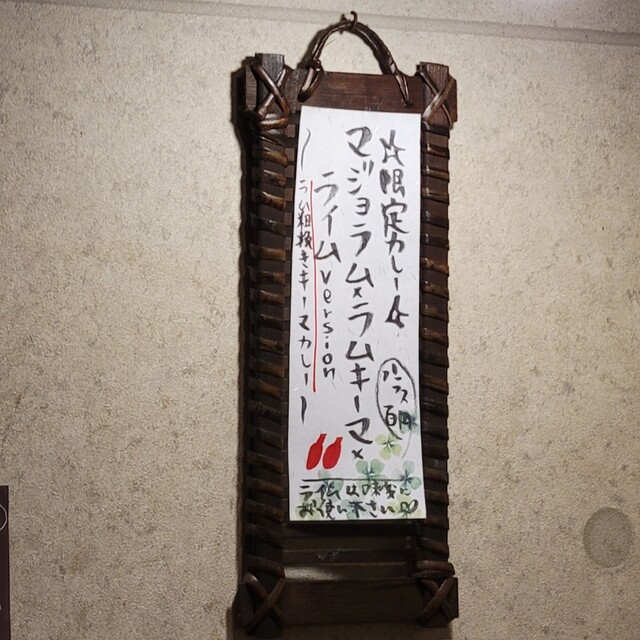 ☆限定カレー☆
マジョラム×ラムキーマ×
プラス百円
ライムversion
〜ラム粗挽きキーマカレー〜
ライムは
お使い下さい♡